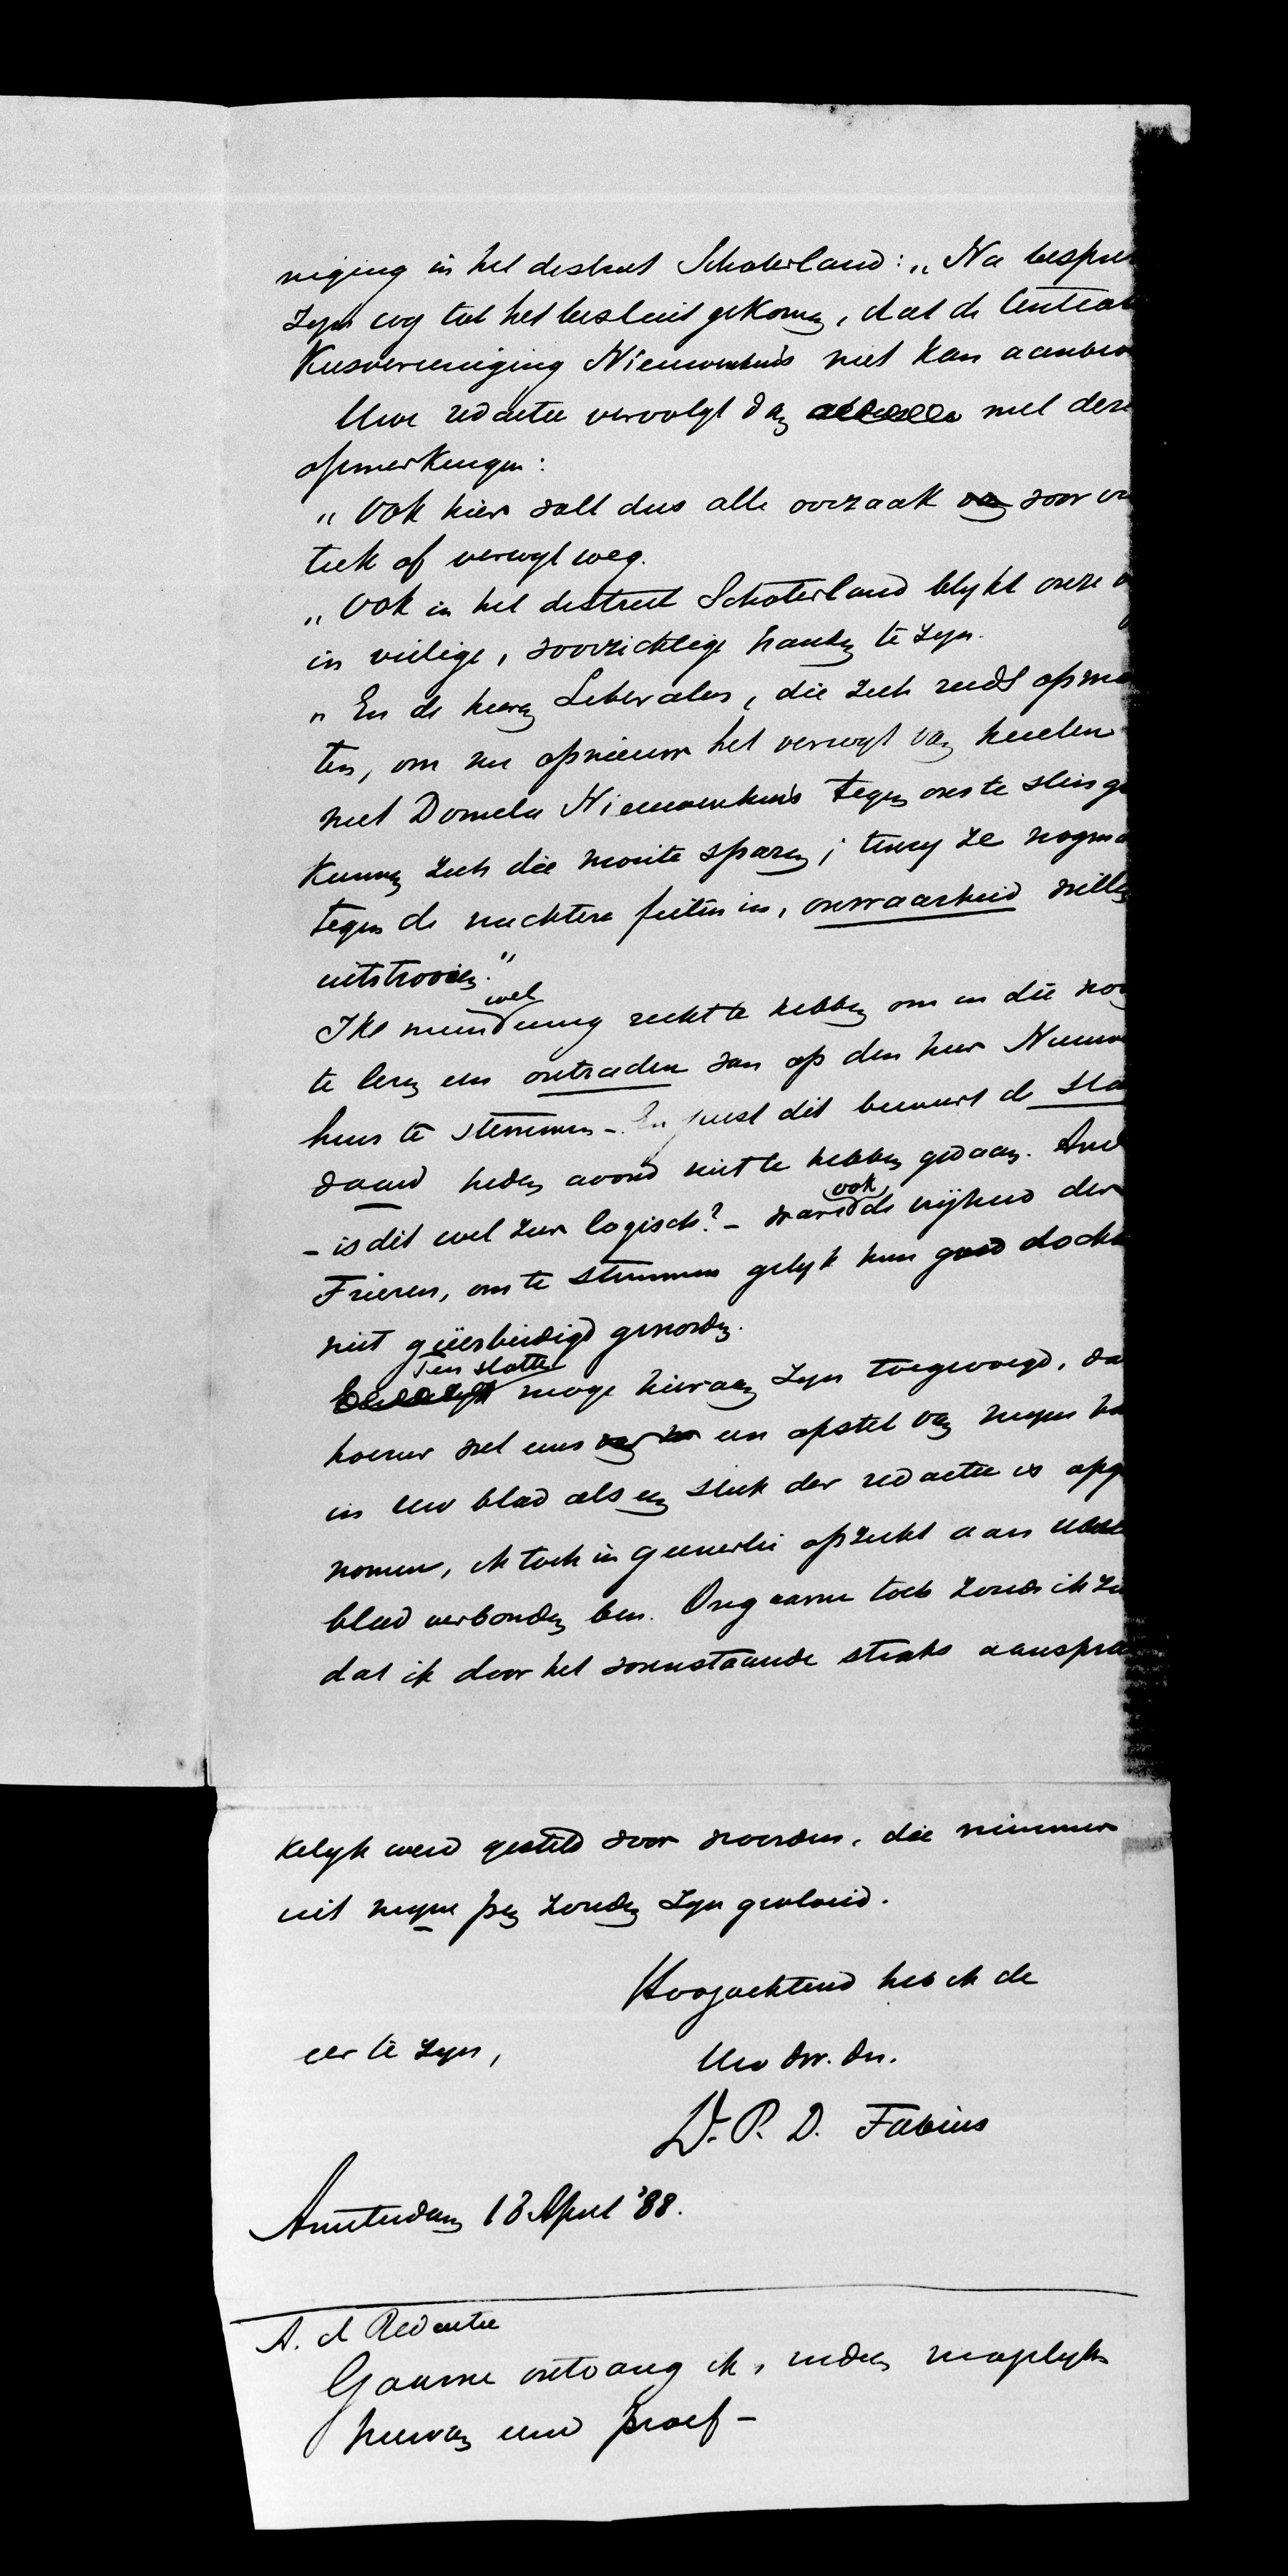 niging in het district Schoterland: „Na bespre
zyn wy tot het besluit gekomen, dat de Centrale
Kiesvereeniging Nieuwenhuis niet kan aanbeve
Uwe redactie vervolgt dan met deze
opmerkingen:
„Ook hier valt dus alle oorzaak voor cri
tiek of verwyt weg.
„Ook in het district Schoterland blykt onze
in veilige, voorzichtige handen te zyn.
„En de heeren Liberalen, die zich reeds opmaak
ten, om nu opnieuw het verwyt van heulen
met Domela Nieuwenhuis tegen ons te slinge
kunnen zich die moeite sparen; tenzy ze nogma
tegen de nuchtere feiten in, onwaarheid willen
uitstrooien."
Ik meende wel eenig recht te hebben om in die
te lezen een ontraden van op den heer Nieuwen
huis te stemmen – En juist dit beweert de Sta
daard heden avond niet te hebben gedaan.
– is dit wel zeer logisch? – ware ook de vrijheid der
Friezen, om te stemmen gelyk hun goed docht
niet geëerbiedigd geworden.
Ten slotte moge hieraan zyn toegevoegd, da
hoezeer wel eens een opstel van myne ha
in Uw blad als een stuk der redactie is opge
nomen, ik toch in geenerlei opzicht aan
blad verbonden ben. Ongaarne toch zoude ik zie
dat ik door het bovenstaande straks aanspra
kelyk werd gesteld voor woorden, die nimmer
uit myne pen zouden zyn gevloeid.
Hoogachtend heb ik de
eer te zyn,
Uw dw. dr.
D. P. D. Fabius
Amsterdam 18 April '88.
A. d Redactie
Gaarne ontvang ik, indien mogelyk
hiervan eene proef –